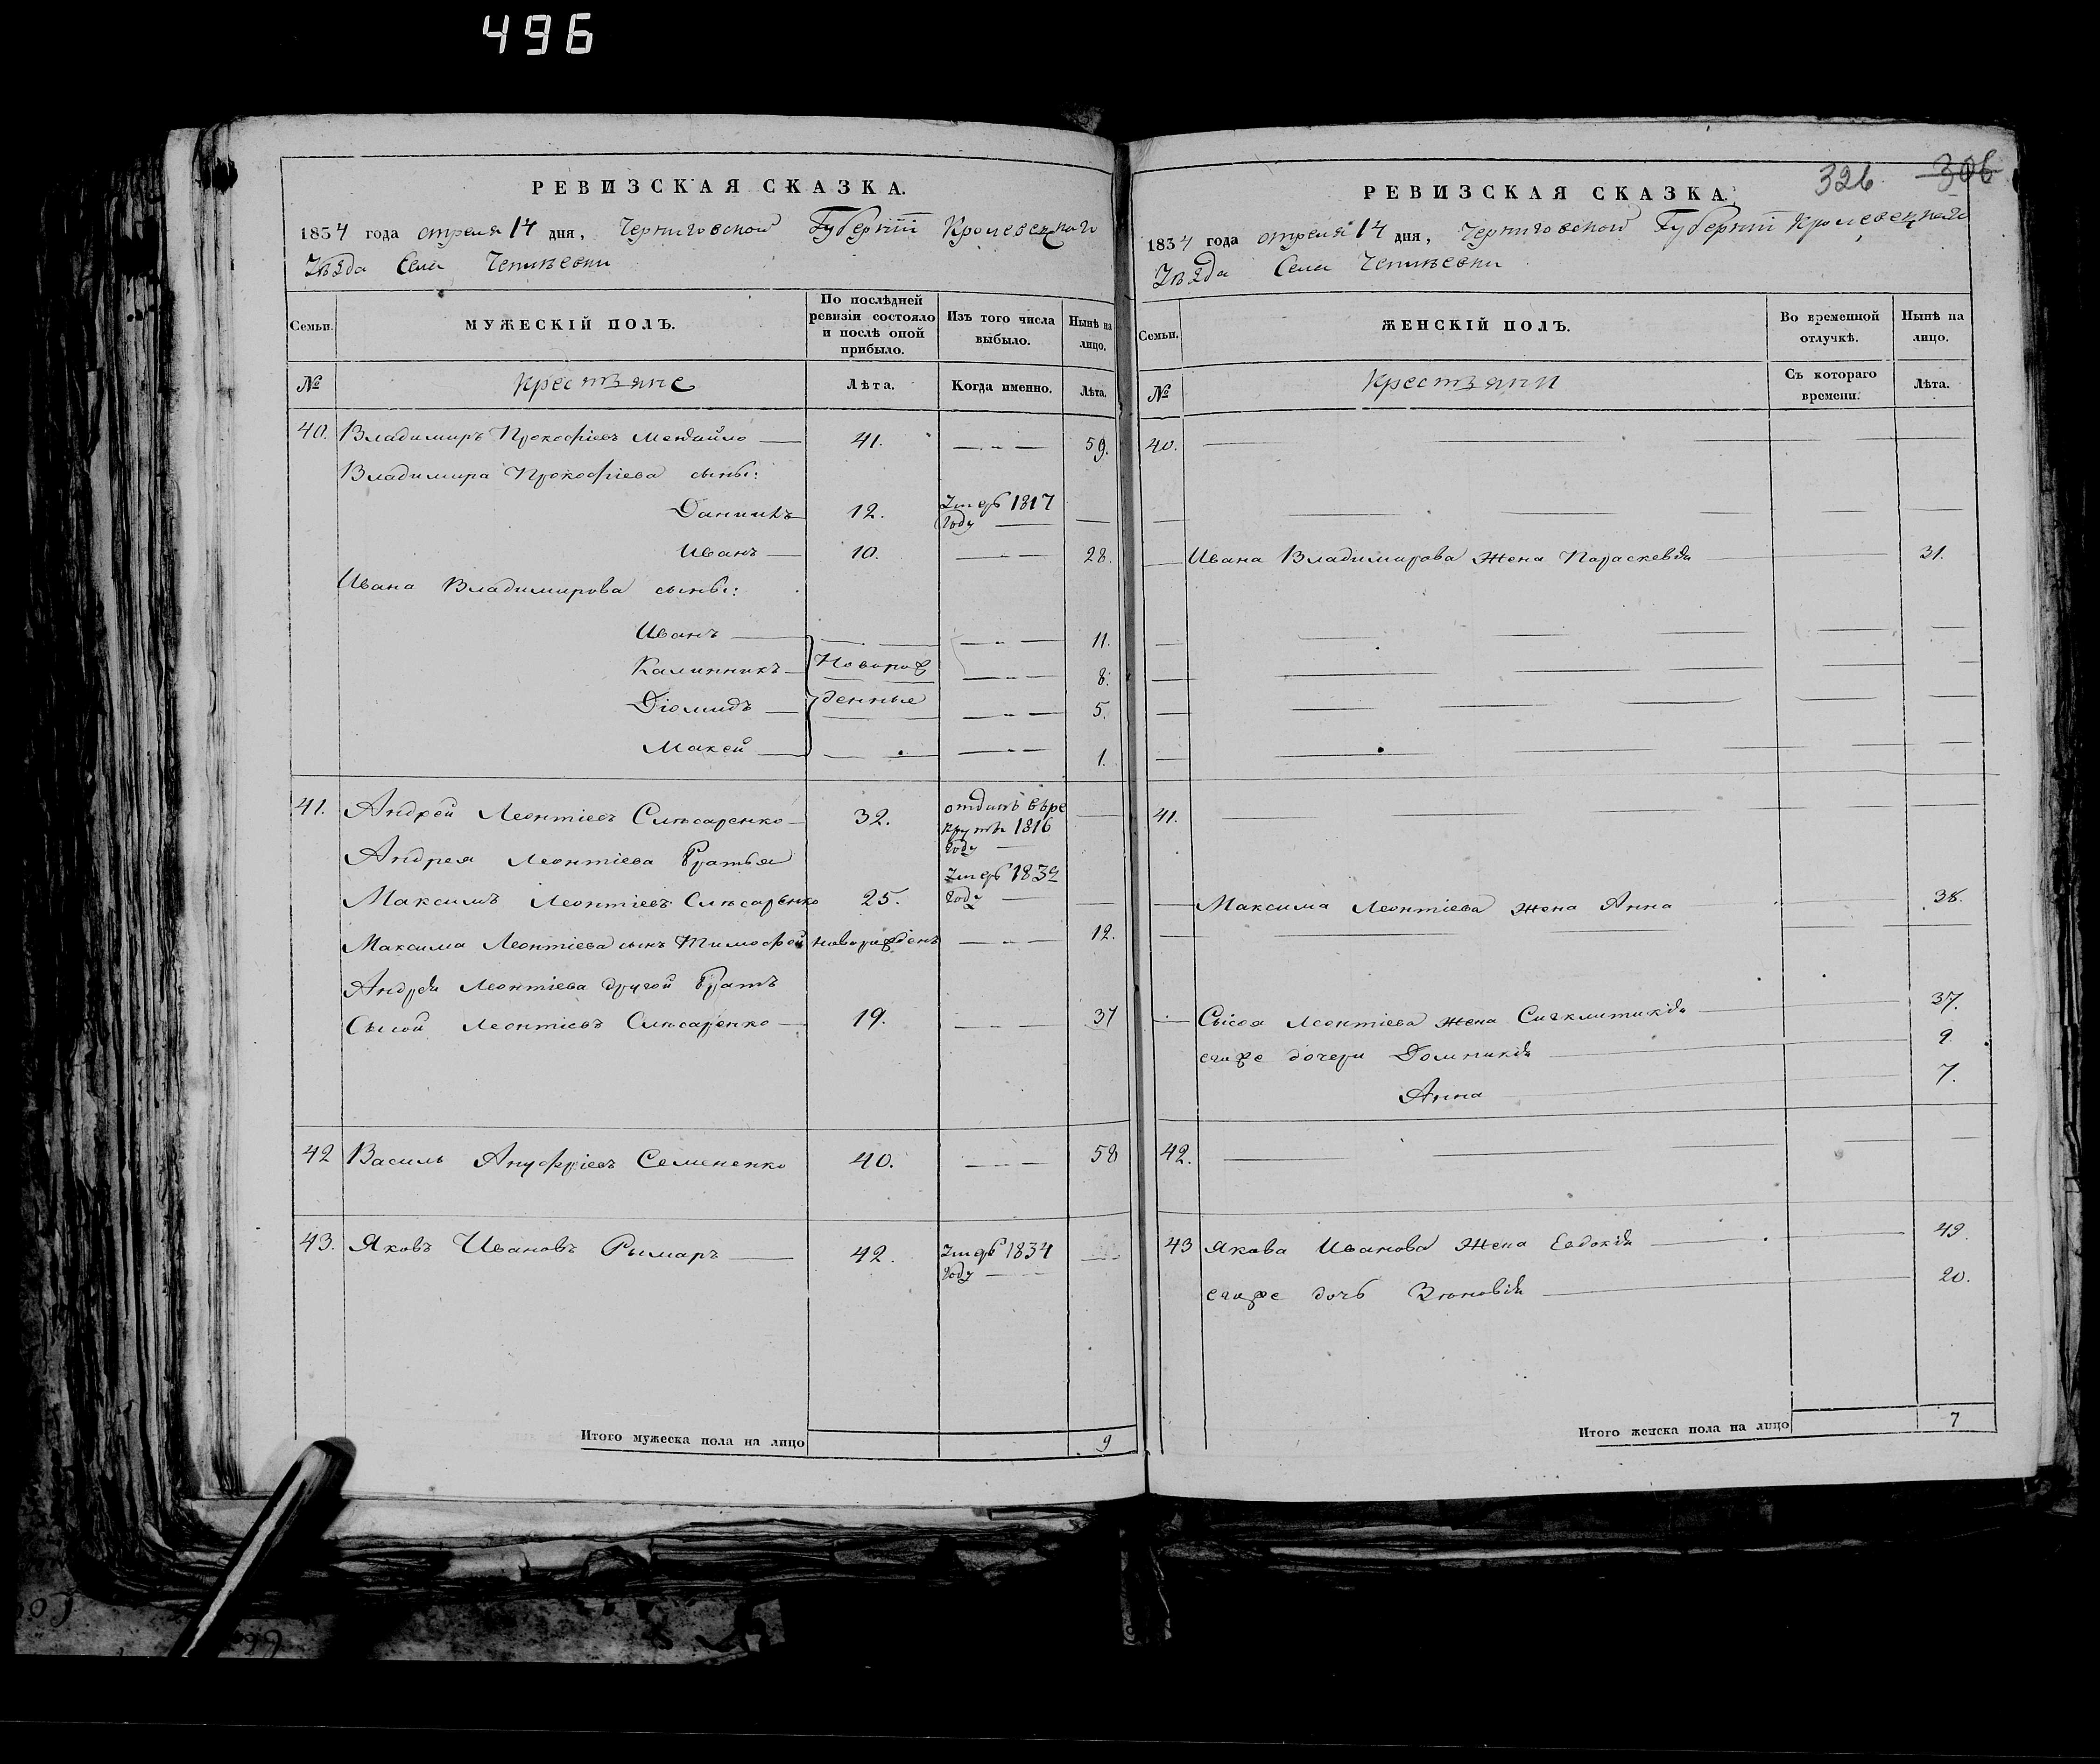 496
РЕВИЗСКАЯ СКАЗКА.
1834 года апреля 14 дня, Черниговской Губернiи Кролевецкаго
Уѣзда Села
Семьи.
МУЖЕСКІЙ ПОЛЪ.
По послѣдней ревизіи состояло и послѣ оной прибыло.
Изъ того числа выбыло.
Нынѣ на лицо.
№
Крестьяне
Лѣта.
Когда именно.
Лѣта.
40. Владимиръ Прокофіевъ 41. 59.
Владимира Прокофіева сыны:
Даниилъ 12. умеръ 1817 году
Иванъ 10. 28.
Ивана Владимирова сыны:
Иванъ 11.
Калинникъ Новорож 8.
Діомидъ денные 5.
Мокей 1.
41. Андрей Леонтіевъ Слѣсаренко 32. отданъ въ рекруты 1816 году
Андрея Леонтіева братья
Максимъ Леонтіевъ Слѣсаренко 25. умеръ году
Максима Леонтіева сынъ Тимофей новорожденъ 12.
Андрея Леонтіева другой братъ
Сысой Леонтіевъ Слѣсаренко 19. 37
42 Василь Ануфріевъ Семененко 40. 58
43. Яковъ Ивановъ Рымаръ 42. умеръ 1834 году
Итого мужеска пола на лицо 9
326. 306
РЕВИЗСКАЯ СКАЗКА.
1834 года апреля 14 дня, Черниговской Губернiи Кролевецкаго
Уѣзда Села
Семьи.
ЖЕНСКІЙ ПОЛЪ.
Во временной отлучкѣ.
Нынѣ на лицо.
№
Крестьяни
Съ котораго времени.
Лѣта.
40.
Ивана Владимирова жена Параскевія 31.
41.
Максима Леонтіева жена Анна 38.
Сысоя Леонтіева жена Сигклитикія 37.
егоже дочери Домникія 9.
Анна 7.
42.
43 Якова Иванова жена Евдокія 49.
егоже дочь Зиновія 20.
Итого женска пола на лицо 7